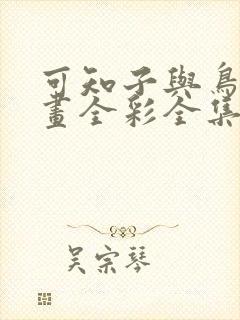 可知子與鳥
畫全彩全集
吴宗琴